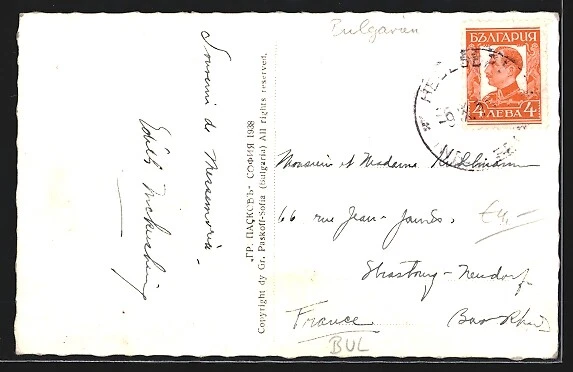 Bulgarien
БЪЛГАРИЯ
4 ЛЕВА 4
Souvenir de
Edith
„ГР. ПАСКОВЪ“ СОФИЯ 1938
Copyright by Gr. Paskoff-Sofia (Bulgaria) All rights reserved.
Monsieur et Madame
66 rue Jean-Jaurès.
€4,-
Strasbourg-Neudorf
France Bas Rhin
BUL